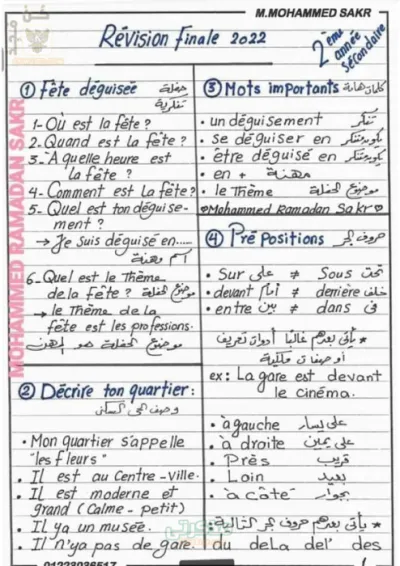 M.MOHAMMED SAKR
Révision Finale 2022
2ème année secondaire
MOHAMMED RAMADAN SAKR
① Fête déguisée حفلة تنكرية
1- Où est la fête ?
2- Quand est la fête ?
3- A quelle heure est
la fête ?
4- Comment est La fête ?
5- Quel est ton déguise-
ment ?
→ Je Suis déguisé en.....
اسم مهنة
6- Quel est le Thème
de la fête ? موضوع الحفلة
→ le Thème de la
fête est les professions.
موضوع الحفلة هو المهن
② Décrire ton quartier :
وصف الحى السكنى
• Mon quartier s'appelle
"les fleurs"
• Il est au Centre-Ville.
• Il est moderne et
grand (Calme - petit)
• Il ya un musée.
• Il n'ya pas de gare.
③ Mots importants كلمات هامة
• un déguisement تنكر
• se déguiser en يتنكر
• être déguisé en
• en + مهنة
• le Thème موضوع الحفلة
♡Mohammed Ramadan Sakr♡
④ Prépositions حروف جر
• Sur على ≠ Sous تحت
• devant أمام ≠ derrière خلف
• entre بين ≠ dans فى
* يأتى بعدهم غالبا أدوات تعريف
أو صفات ملكية
ex : La gare est devant
le cinéma.
• à gauche على يسار
• à droite على يمين
• Près قريب
• Loin بعيد
• à côté بجوار
* يأتى بعدهم حروف جر التالية :
du de La de l' des
01223036517